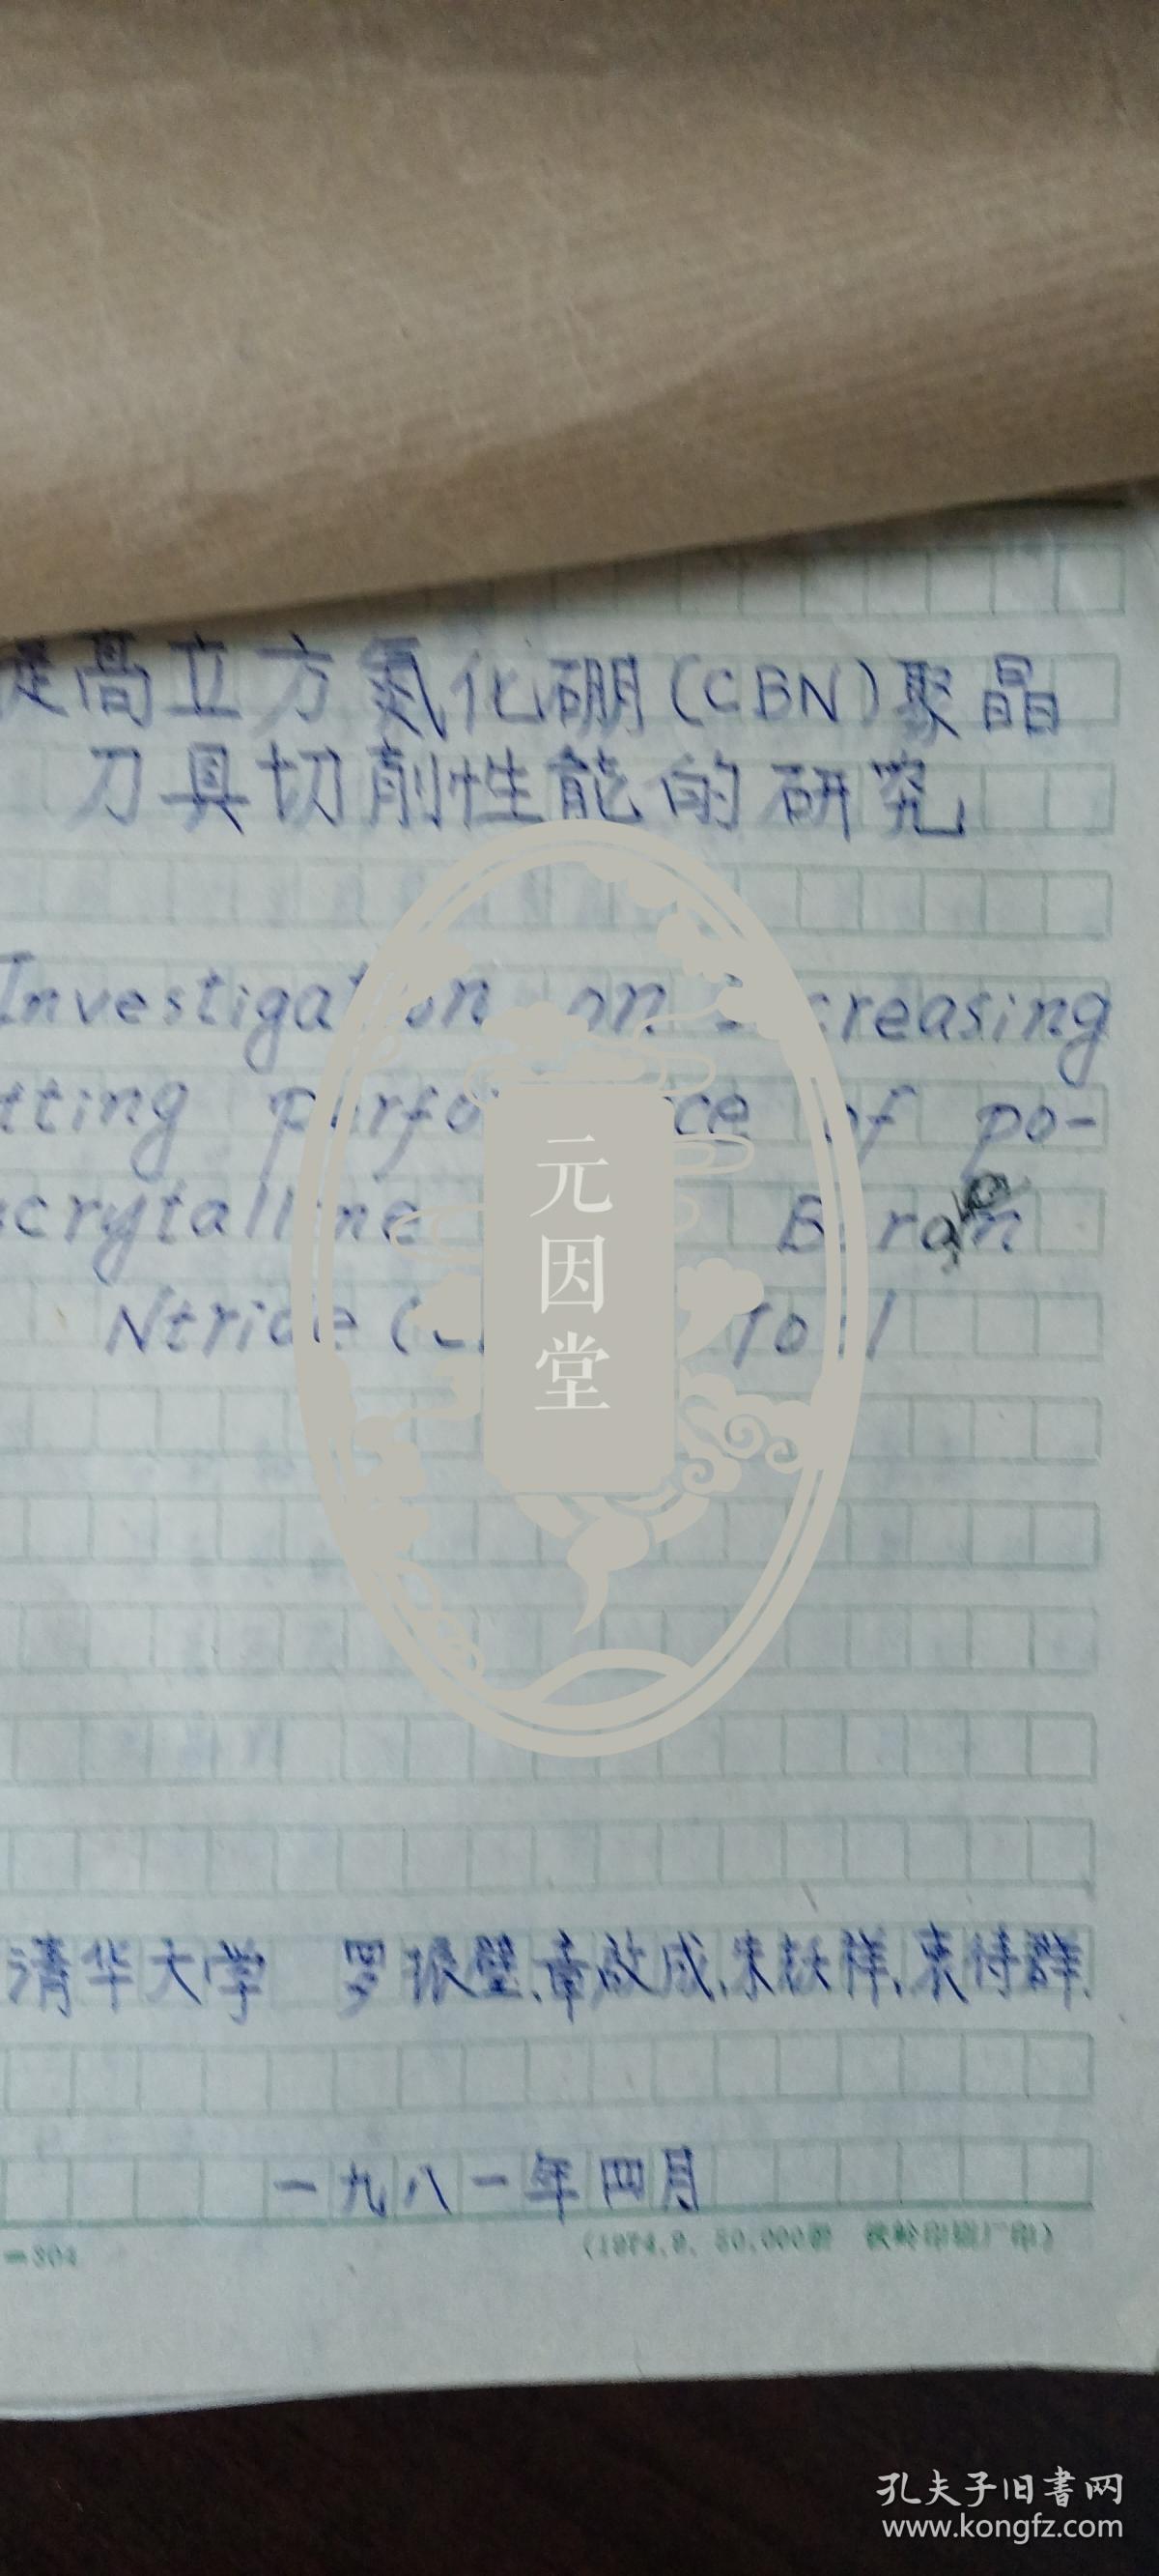 提高立方氮化硼(CBN)聚晶
刀具切削性能的研究
Investigation on Increasing
tting performance of po-
crytalline Boron
Ntride ( Tool
元因堂
清华大学 罗振璧、章
一九八一年四月
=304
(1974.9. 50,000 印刷厂印)
孔夫子旧书网
www.kongfz.com